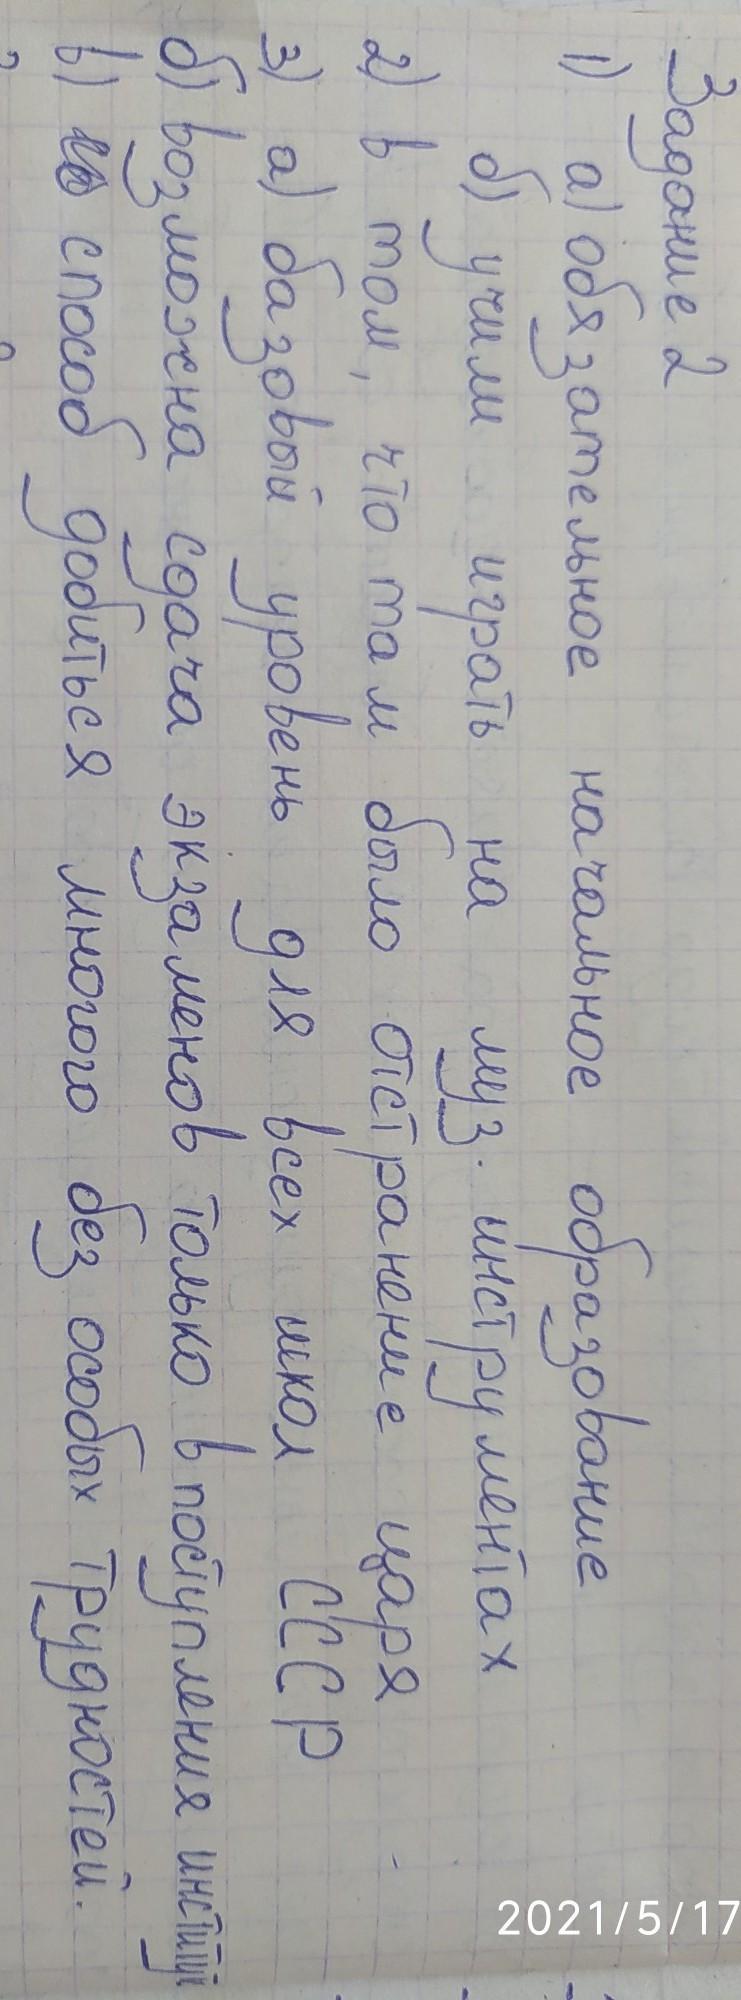 Задание 2
1) а) обязательное начальное образование
б) учили играть на муз. инструментах
2) в том, что там было отстранение царя
3) а) базовый уровень для всех школ СССР
б) возможна сдача экзаменов только в поступления институт
в) способ добиться многого без особых трудностей.
2021/5/17